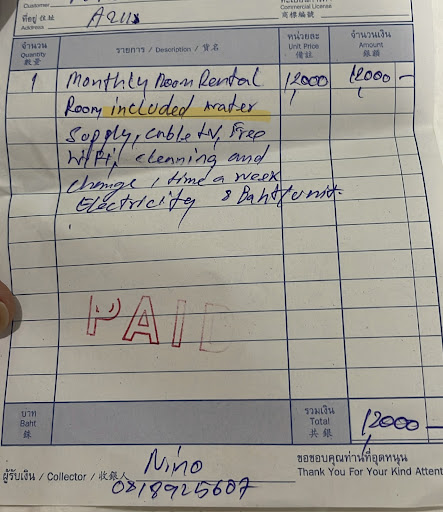 Customer
ที่อยู่ 住址 A211
Address
Commercial License
商標編號
จำนวน รายการ / Description / 貨名 หน่วยละ จำนวนเงิน
Quantity Unit Price Amount
數量 備註 銀額
1 Monthly Room Rental 12000 12000 -
Room included water
Supply, cable tv, Free
WiFi, clenning and
change 1 time a week
Electricity 8 Baht/unit.
PAID
บาท รวมเงิน 12000 -
Baht Total
銖 共銀
ผู้รับเงิน / Collector / 收銀人 Nino
0818925607
ขอขอบคุณท่านที่อุดหนุน
Thank You For Your Kind Attent